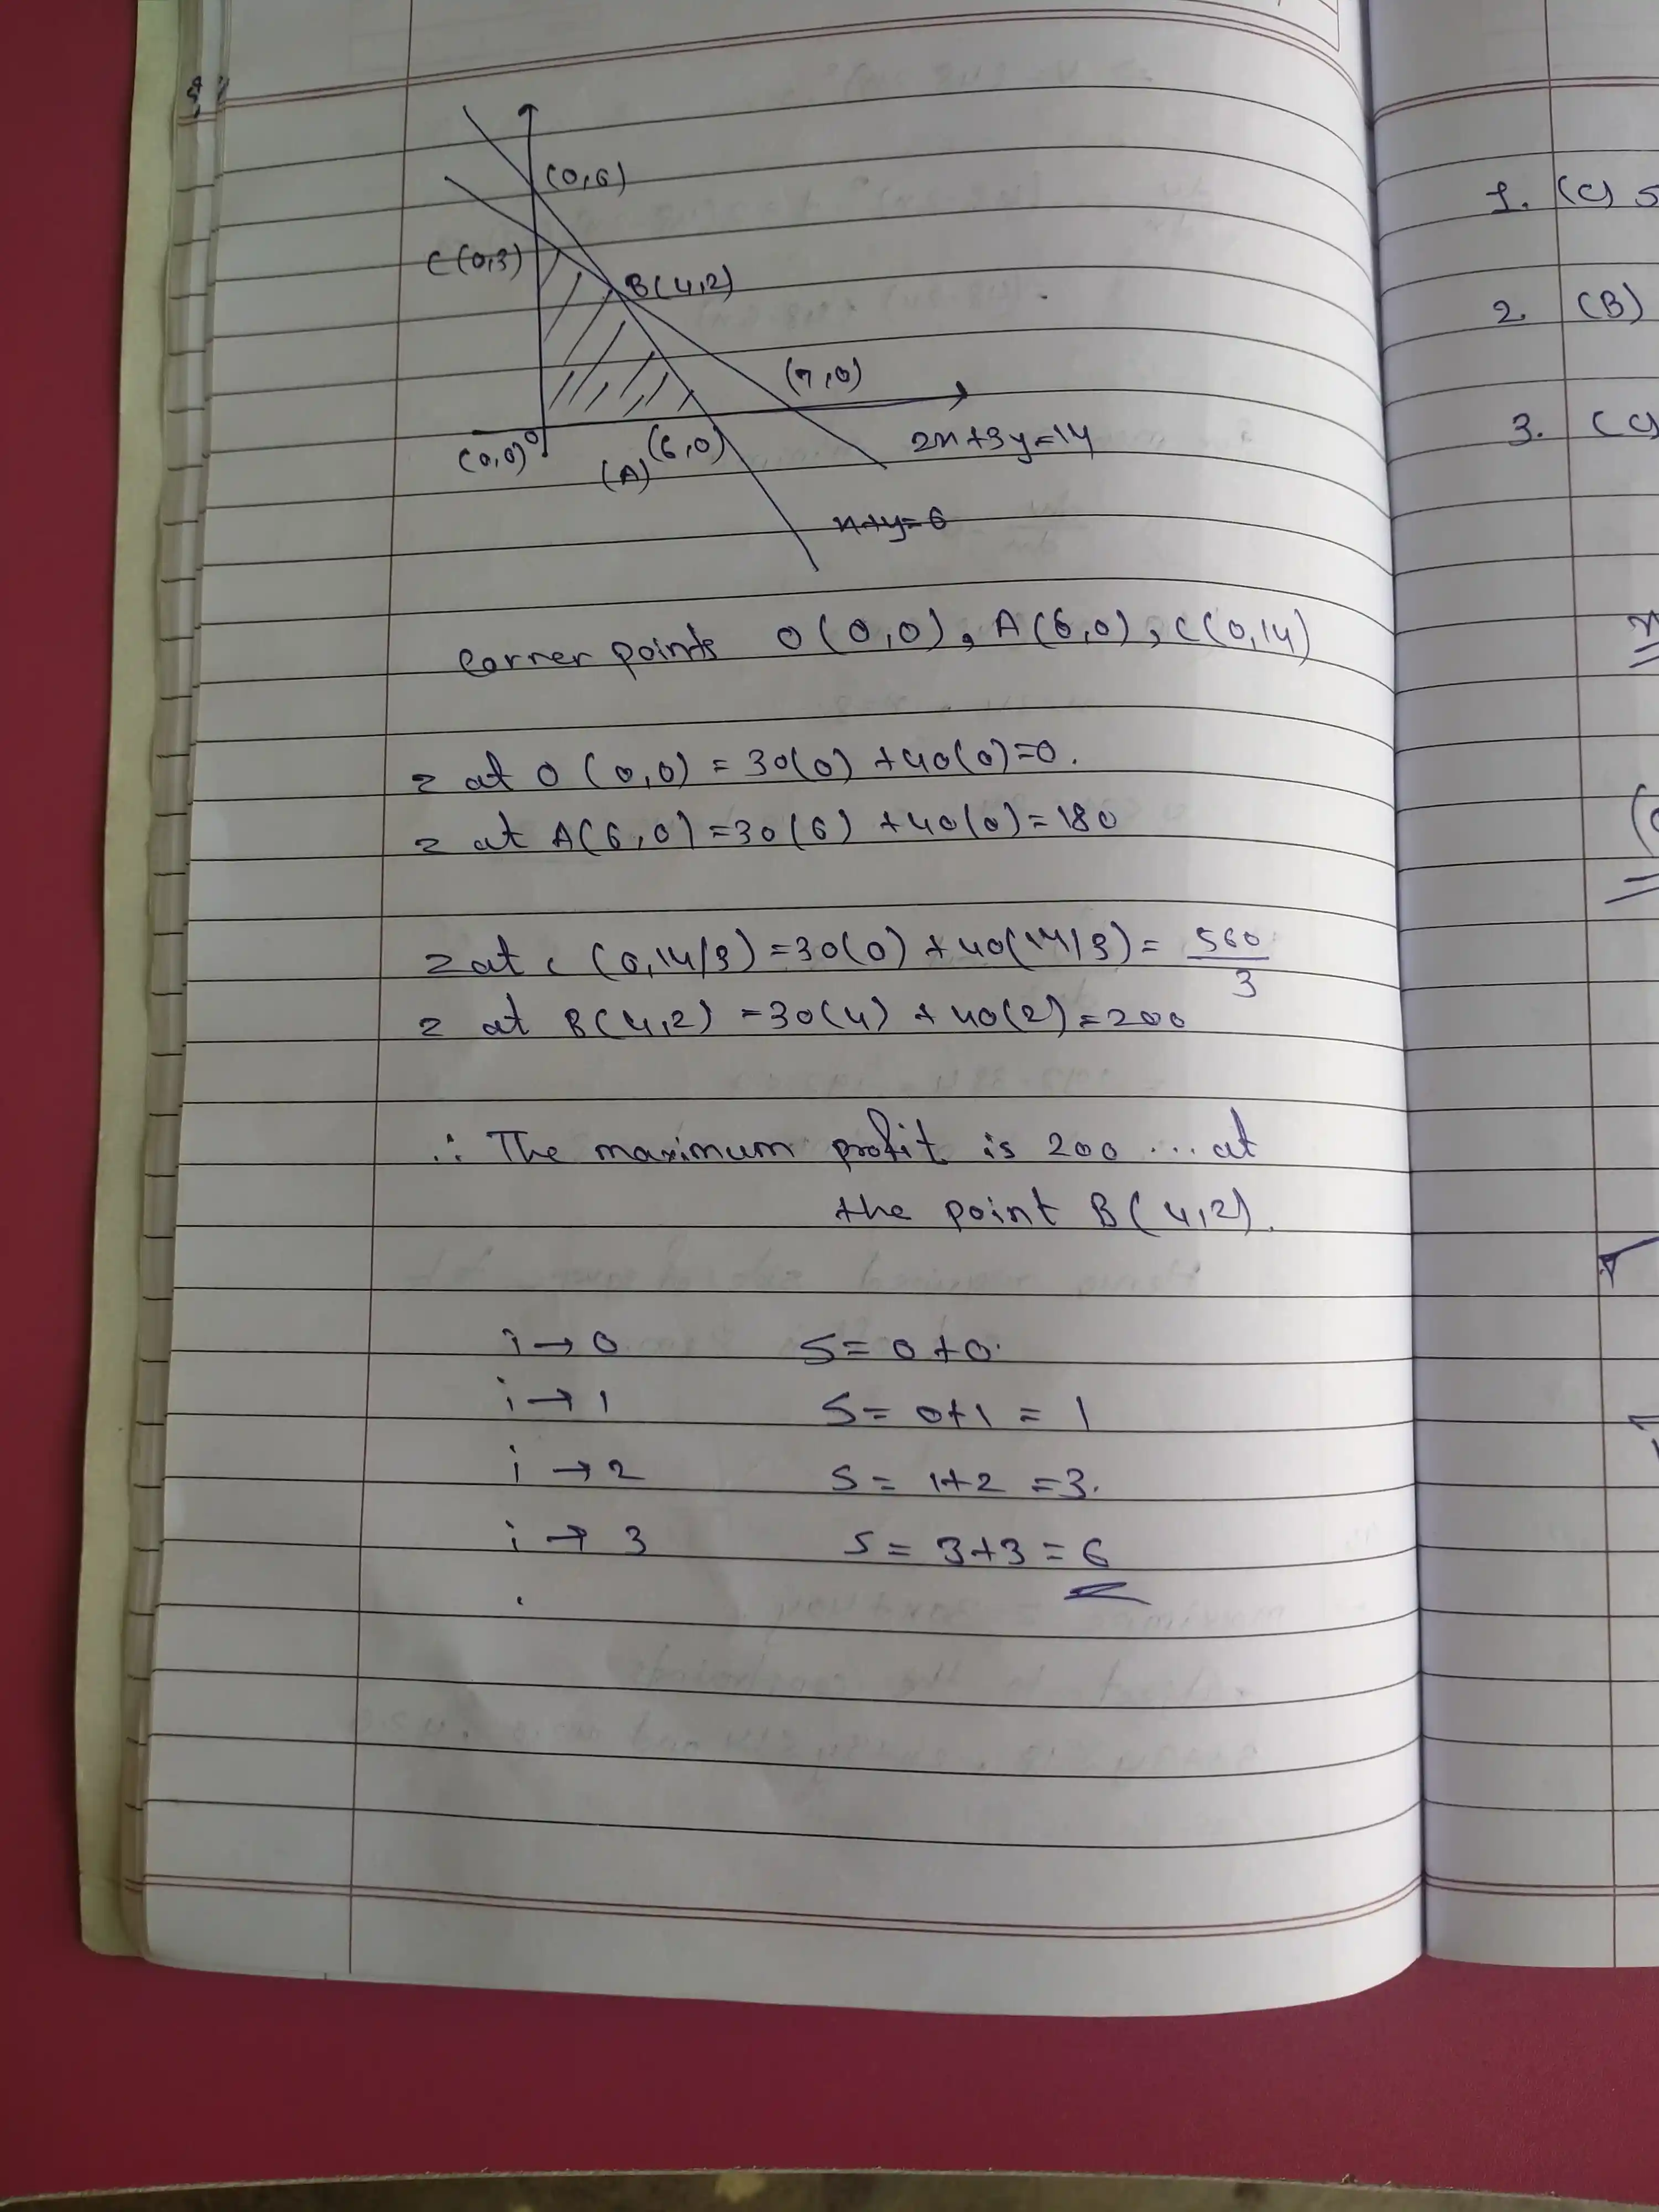 (0,6)
C(0,3)
B(4,2)
(7,0)
(0,0) 0
(A) (6,0)
2x+3y=14
x+y=6
Corner points O(0,0), A(6,0), C(0,14)
z at O (0,0) = 30(0) +40(0)=0.
z at A(6,0)=30(6) +40(0)=180
z at C (0,14/3)=30(0) + 40(14/3)= 560/3
z at B(4,2) =30(4) + 40(2)=200
∴ The maximum profit is 200 ... at
the point B(4,2).
i → 0 S= 0+0.
i → 1 S= 0+1 = 1
i → 2 S= 1+2 =3.
i → 3 S= 3+3 = 6
1. (C) 5
2. (B)
3. (C)